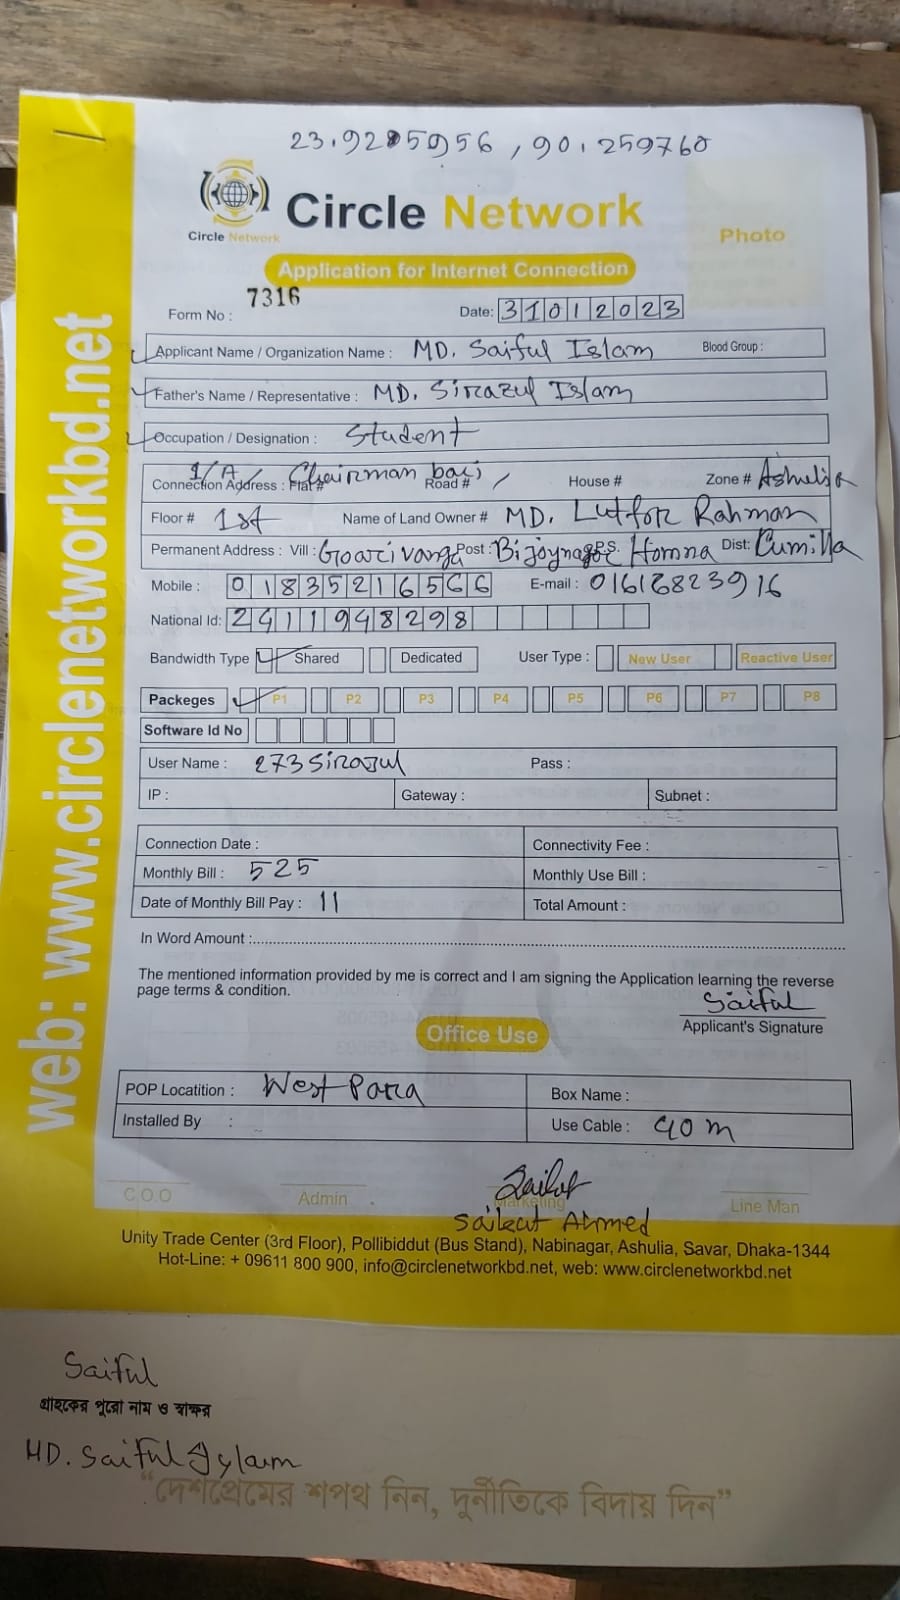 23.9205956, 90.259760
Circle Network
Circle Network
Photo
Application for Internet Connection
Form No : 7316
Date: 31012023
Applicant Name / Organization Name : MD. Saiful Islam Blood Group :
Father's Name / Representative : MD. Sirazul Islam
Occupation / Designation : Student
Connection Address : Flat# 1/A/ Chairman bari Road # / House # Zone # Ashulia
Floor # 1st Name of Land Owner # MD. Lutfor Rahman
Permanent Address : Vill : Post : Bijoynagar P.S. Homna Dist: Cumilla
Mobile : 01835216566 E-mail : 01616823916
National Id: 2411948298
Bandwidth Type Shared Dedicated User Type : New User Reactive User
Packeges P1 P2 P3 P4 P5 P6 P7 P8
Software Id No
User Name : 273Sirajul Pass :
IP : Gateway : Subnet :
Connection Date : Connectivity Fee :
Monthly Bill : 525 Monthly Use Bill :
Date of Monthly Bill Pay : 11 Total Amount :
In Word Amount :
The mentioned information provided by me is correct and I am signing the Application learning the reverse
page terms & condition.
Saiful
Applicant's Signature
Office Use
POP Locatition : West Para Box Name :
Installed By : Use Cable : 90 m
C.O.O Admin Marketing Line Man
Saikat Ahmed
Unity Trade Center (3rd Floor), Pollibiddut (Bus Stand), Nabinagar, Ashulia, Savar, Dhaka-1344
Hot-Line: + 09611 800 900, info@circlenetworkbd.net, web: www.circlenetworkbd.net
web: www.circlenetworkbd.net
Saiful
গ্রাহকের পুরো নাম ও স্বাক্ষর
MD. Saiful Islam
“দেশপ্রেমের শপথ নিন, দুর্নীতিকে বিদায় দিন”